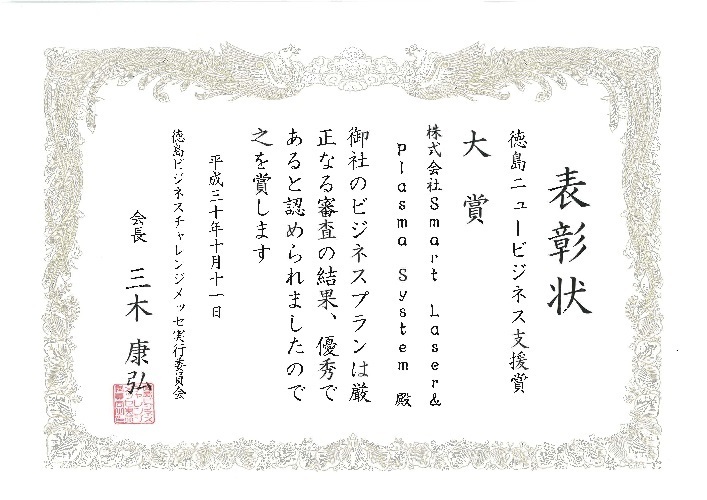 表彰状
徳島ニュービジネス支援賞
大賞
株式会社Smart Laser&
Plasma System 殿
御社のビジネスプランは厳
正なる審査の結果、優秀で
あると認められましたので
之を賞します
平成三十年十月十一日
徳島ビジネスチャレンジメッセ実行委員会
会長 三木康弘